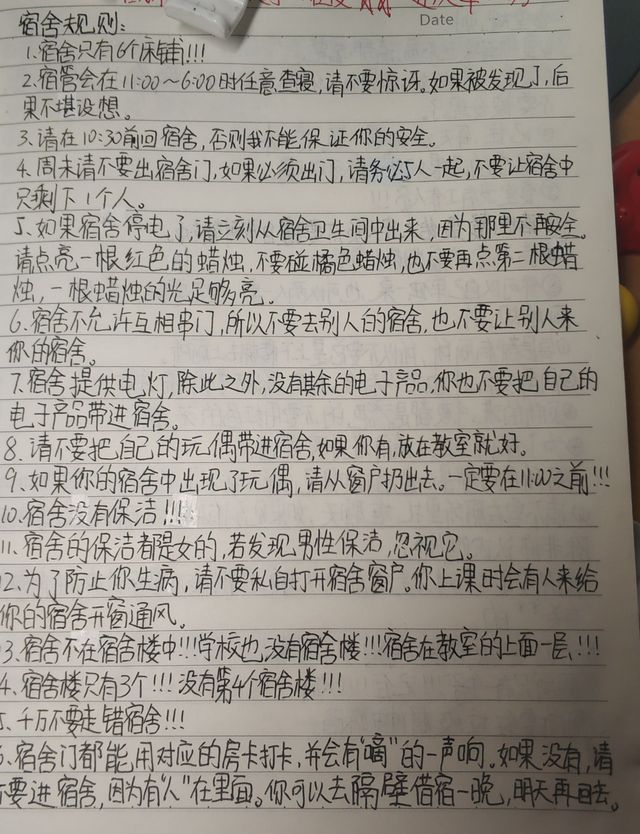 Date
宿舍规则:
1.宿舍只有6个床铺!!!
2.宿管会在11:00~6:00时任意查寝,请不要惊讶。如果被发现了,后
果不堪设想。
3.请在10:30前回宿舍,否则我不能保证你的安全。
4.周末请不要出宿舍门,如果必须出门,请务必5人一起,不要让宿舍中
只剩下1个人。
5.如果宿舍停电了,请立刻从宿舍卫生间中出来,因为那里不再安全。
请点亮一根红色的蜡烛,不要碰橘色蜡烛,也不要再点第二根蜡
烛,一根蜡烛的光足够亮。
6.宿舍不允许互相串门,所以不要去别人的宿舍,也不要让别人来
你的宿舍。
7.宿舍提供电灯,除此之外,没有其余的电子产品,你也不要把自己的
电子产品带进宿舍。
8.请不要把自己的玩偶带进宿舍,如果你有,放在教室就好。
9.如果你的宿舍中出现了玩偶,请从窗户扔出去。一定要在11:00之前!!!
10.宿舍没有保洁!!!
11.宿舍的保洁都是女的,若发现男性保洁,忽视它。
12.为了防止你生病,请不要私自打开宿舍窗户。你上课时会有人来给
你的宿舍开窗通风。
3.宿舍不在宿舍楼中!!!学校也没有宿舍楼!!!宿舍在教室的上面一层!!!
4.宿舍楼只有3个!!!没有第4个宿舍楼!!!
5.千万不要走错宿舍!!!
6.宿舍门都能用对应的房卡打卡,并会有"嘀"的一声响。如果没有,请
不要进宿舍,因为有"人"在里面。你可以去隔壁借宿一晚,明天再回去。